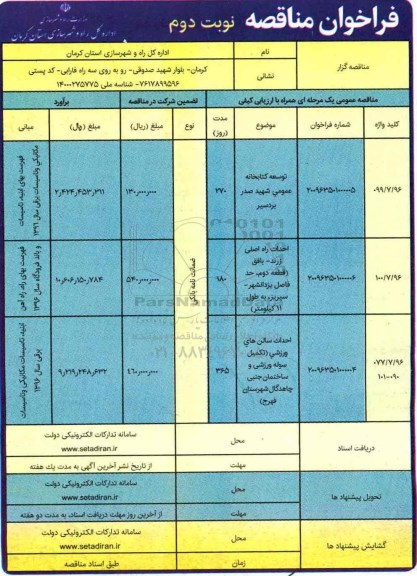 فراخوان مناقصه نوبت دوم
وزارت راه و شهرسازی
اداره کل راه و شهرسازی استان کرمان
مناقصه گزار
نام
اداره کل راه و شهرسازی استان کرمان
نشانی
کرمان- بلوار شهید صدوقی- رو به روی سه راه فارابی- کد پستی
۷۶۱۷۸۹۹۵۹۶- شناسه ملی ۱۴۰۰۰۲۷۵۷۷۵
مناقصه عمومی یک مرحله ای همراه با ارزیابی کیفی
تضمین شرکت در مناقصه
برآورد
کلید واژه
شماره فراخوان
موضوع
مدت (روز)
نوع
مبلغ (ریال)
مبلغ (ریال)
مبانی
۰۹۹/۷/۹۶
۲۰۰۹۶۳۵۰۱۰۰۰۰۰۵
توسعه کتابخانه
عمومی شهید صدر
بردسیر
۲۷۰
ضمانت نامه بانکی
۱۳۰,۰۰۰,۰۰۰
۲,۴۲۴,۴۵۳,۳۱۱
فهرست بهای ابنیه، تاسیسات
مکانیکی وتاسیسات برقی سال ۱۳۹۶
۱۰۰/۷/۹۶
۲۰۰۹۶۳۵۰۱۰۰۰۰۰۶
احداث راه اصلی
زرند- بافق
(قطعه دوم، حد
فاصل یزدانشهر-
سیریز، به طول
۱۱ کیلومتر)
۱۸۰
۵۴۰,۰۰۰,۰۰۰
۱۰,۶۰۶,۱۵۰,۷۸۴
فهرست بهای راه، راه آهن
و باند فرودگاه سال ۱۳۹۶
۰۷۷/۷/۹۶
۱۰۱۰۰۹۰
۲۰۰۹۶۳۵۰۱۰۰۰۰۰۴
احداث سالن های
ورزشی (تکمیل
سوله ورزشی و
ساختمان جنبی
چاهدگال شهرستان
فهرج)
۳۶۵
۴۶۰,۰۰۰,۰۰۰
۹,۲۱۹,۲۴۸,۶۳۲
ابنیه، تاسیسات مکانیکی وتاسیسات
برقی سال ۱۳۹۶
دریافت اسناد
محل
سامانه تدارکات الکترونیکی دولت
www.setadiran.ir
مهلت
از تاریخ نشر آخرین آگهی به مدت یک هفته
تحویل پیشنهاد ها
محل
سامانه تدارکات الکترونیکی دولت
www.setadiran.ir
مهلت
از آخرین روز مهلت دریافت اسناد، به مدت دو هفته
گشایش پیشنهاد ها
محل
سامانه تدارکات الکترونیکی دولت
www.setadiran.ir
زمان
طبق اسناد مناقصه